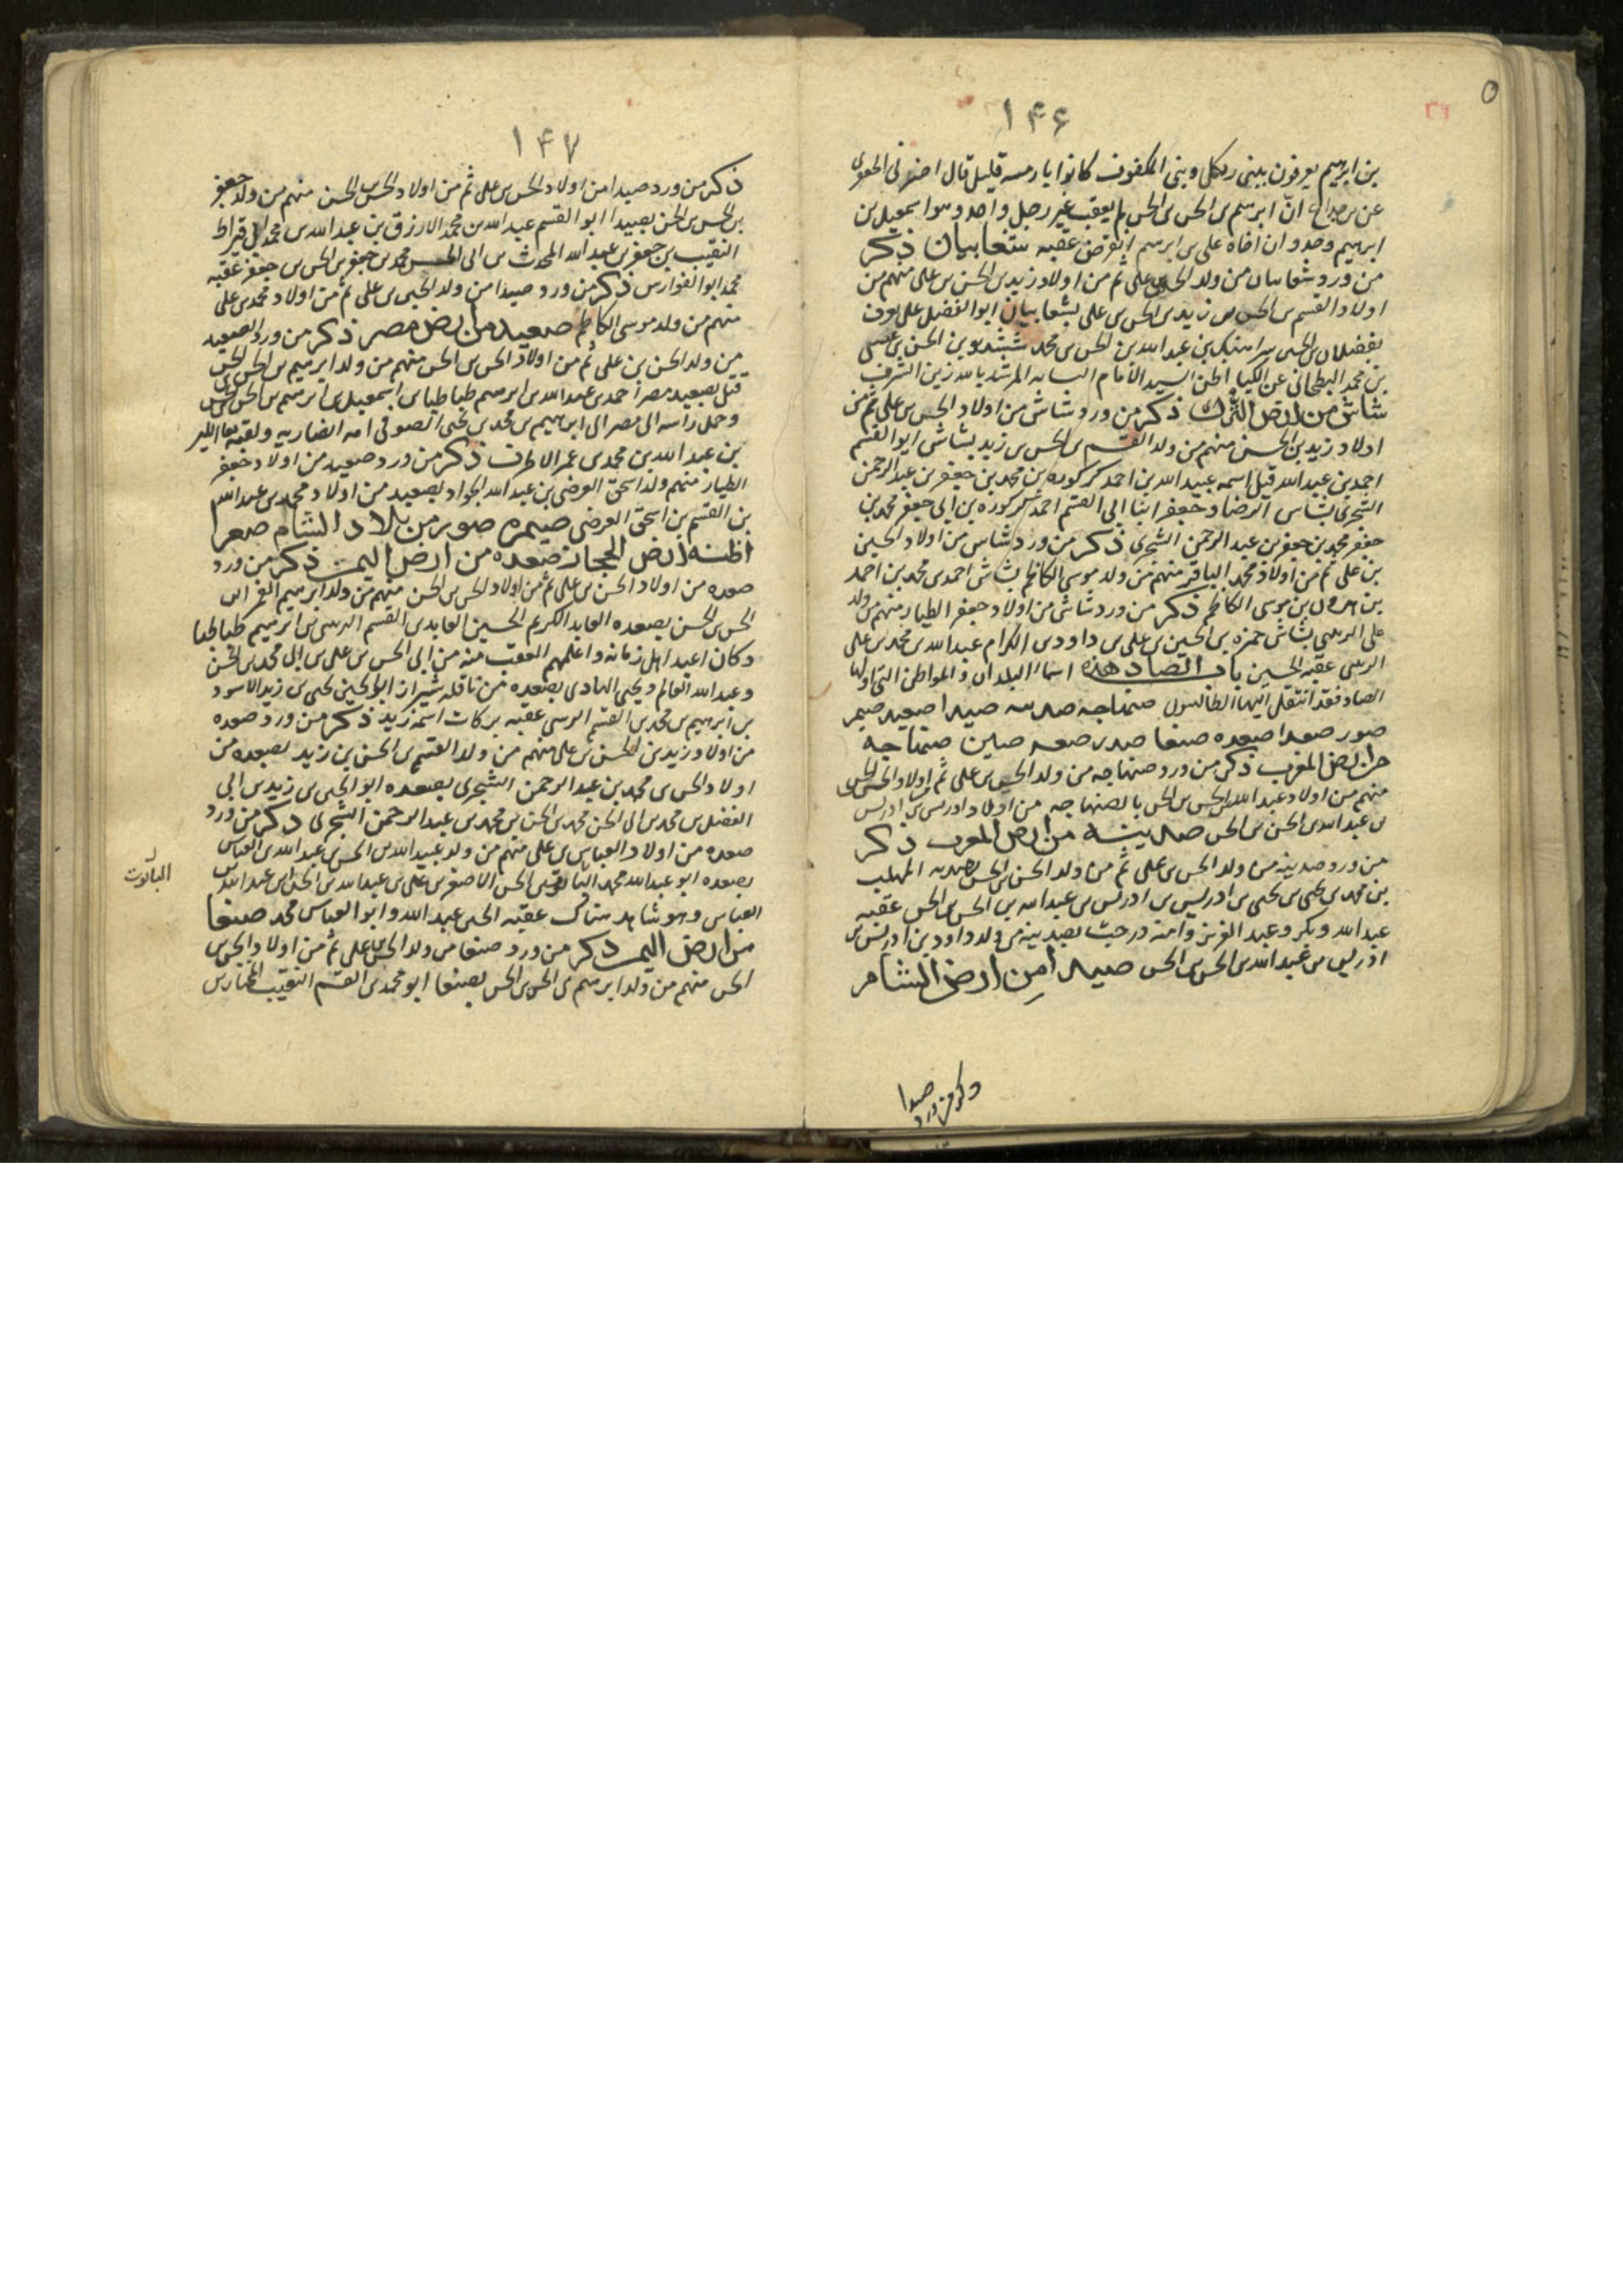 ۱۴۶
بن ابرهيم يعرفون ببنى وبنى المكفوف كانوا قليل قال
انّ ابرهيم بن الحسن بن الحسن لم يعقب غير رجل واحد وهو اسمعيل بن
ابرهيم وجدوا ان اخاه على بن ابرهيم انقرض عقبه شعابيان ذكر
من ورد شعابيان من ولد الحسن بن على ثم من اولاد زيد بن الحسن بن على منهم من
اولاد القسم بن الحسن بن زيد بن الحسن بن على بشعابيان ابو الفضل على يعرف
بن عبد الله بن الحسن بن محمد ششديو بن الحسن بن عيسى
بن محمد البطحانى عن الكيا الحسن السيد الامام النسابه المرشد بالله زين الشرف
شاش من ارض الترك ذكر من ورد شاش من اولاد الحسن بن على ثم من
اولاد زيد بن الحسن منهم من ولد القسم بن الحسن بن زيد بشاش ابو القسم
احمد بن عبيد الله قيل اسمه عبيد الله بن احمد كركوره بن محمد بن جعفر بن عبد الرحمن
الشجرى بشاش الرضا وجعفر ابنا ابى القسم احمد كركوره بن ابى جعفر محمد بن
جعفر محمد بن جعفر بن عبد الرحمن الشجرى ذكر من ورد شاش من اولاد الحسين
بن على ثم من اولاد محمد الباقر منهم من ولد موسى الكاظم بشاش احمد بن محمد بن احمد
بن هرون بن موسى الكاظم ذكر من ورد شاش من اولاد جعفر الطيار منهم من ولد
على الزينبى بشاش حمزه بن الحسين بن على بن داود بن عبد الله بن محمد بن على
الزينبى عقبه الحسين باب الصاد هذه اسماء البلدان والمواطن التى اولها
الصاد فقد انتقل اليها الطالبيون صنهاجه صدينه صيدا صعيد صيمر
صور صعدا صعده صنعا صين صنهاجه
من ارض المغرب ذكر من ورد صنهاجه من ولد الحسن بن على ثم اولاد الحسن بن الحسن
منهم من اولاد عبد الله بن الحسن بن الحسن بالصنهاجه من اولاد ادريس بن ادريس
بن عبد الله بن الحسن بن الحسن صدينة من ارض المغرب ذكر
من ورد صدينه من ولد الحسن بن على ثم من ولد الحسن بن الحسن بصدينه المهلب
بن محمد بن يحيى بن يحيى بن ادريس بن ادريس بن عبد الله بن الحسن بن الحسن عقبه
عبد الله وبكر وعبد العزيز وامنه درجت بصدينه من ولد داود بن ادريس بن
ادريس بن عبد الله بن الحسن بن الحسن صيدا من ارض الشام
ذكر من ورد صيدا
۱۴۷
ذكر من ورد صيدا من اولاد الحسن بن على ثم من اولاد الحسن بن الحسن منهم من ولد جعفر
بن الحسن بن الحسن بصيدا ابو القسم عبد الله بن محمد الازرق بن عبد الله بن محمد ابى قيراط
النقيب بن جعفر بن عبد الله المحدث بن ابى الحسن محمد بن جعفر بن الحسن بن جعفر عقبه
محمد ابو الفوارس ذكر من ورد صيدا من ولد الحسين بن على ثم من اولاد محمد بن على
منهم من ولد موسى الكاظم صعيد من ارض مصر ذكر من ورد الصعيد
من ولد الحسن بن على ثم من اولاد الحسن بن الحسن منهم من ولد ابرهيم بن الحسن بن الحسن
قتل بصعيد مصر احمد بن عبد الله بن ابرهيم طباطبا بن اسمعيل بن ابرهيم بن الحسن بن الحسن
وحمل راسه الى مصر الى ابرهيم بن محمد بن يحيى الصوفى امه انصاريه ولقبه
بن عبد الله بن محمد بن عمر الاطرف ذكر من ورد صعيد من اولاد جعفر
الطيار منهم ولد اسحق العرضى بن عبد الله الجواد بصعيد من اولاد محمد بن عبد الله
بن القسم بن اسحق العرضى صيمره صور من بلاد الشام صعرا
اظنه ارض الحجاز صعده من ارض اليمن ذكر من ورد
صعده من اولاد الحسن بن على ثم من اولاد الحسن بن الحسن منهم من ولد ابرهيم الغمر ابن
الحسن بن الحسن بصعده العابد الكريم الحسين العابد بن القسم الرسى بن ابرهيم طباطبا
وكان اعبد اهل زمانه واعلمهم العقب منه من ابى الحسن بن على بن ابى محمد بن الحسن
وعبد الله العالم ويحيى الهادى بصعده من ناقله شيراز ابو الحسين يحيى بن زيد الاسود
بن ابرهيم بن محمد بن القسم الرسى عقبه بركات اسمه زيد ذكر من ورد صعده
من اولاد زيد بن الحسن بن على منهم من ولد القسم بن الحسن بن زيد بصعده من
اولاد الحسن بن محمد بن عبد الرحمن الشجرى بصعده ابو الحسن بن زيد بن ابى
الفضل بن محمد بن ابى الحسن محمد بن الحسن بن محمد بن عبد الرحمن الشجرى ذكر من ورد
صعده من اولاد العباس بن على منهم من ولد عبيد الله بن الحسن بن عبد الله بن العباس
بصعده ابو عبد الله محمد بن الحسن الاصغر بن على بن عبد الله بن الحسن بن عبد الله بن
العباس وهو شاهد هناك عقبه الحسن عبد الله وابو العباس محمد صنعا
من ارض اليمن ذكر من ورد صنعا من ولد الحسن بن على ثم من اولاد الحسن بن
الحسن منهم من ولد ابرهيم بن الحسن بن الحسن بصنعا ابو محمد بن القسم النقيب